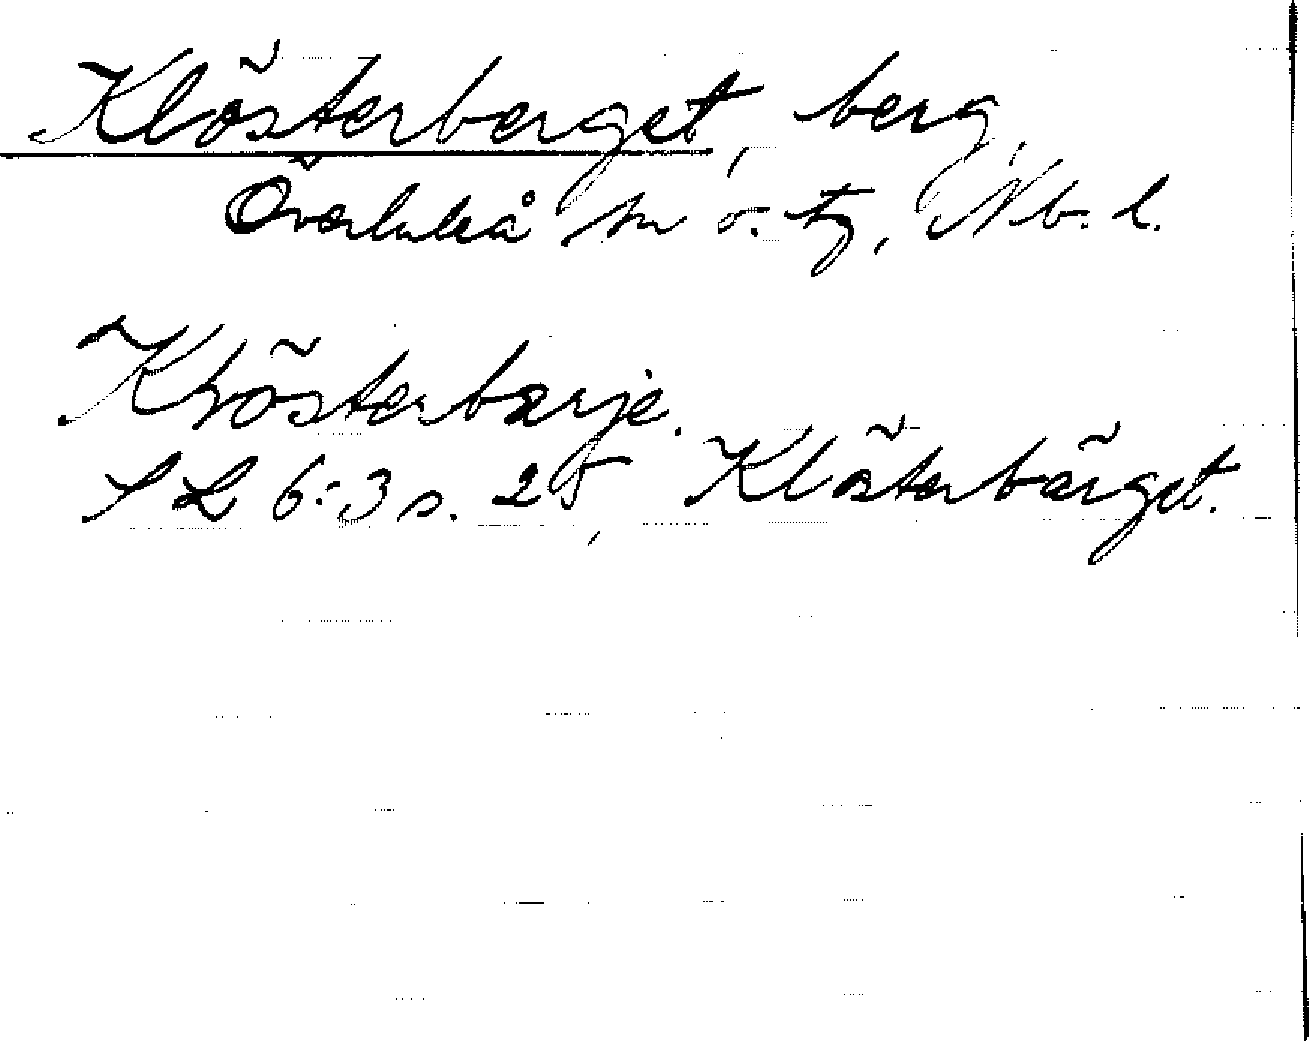 Klösterberget, berg,
Överluleå sn o. tg, Nb. l.
Klösterbarje.
SL 6:3 s. 25, Klösterbärget.